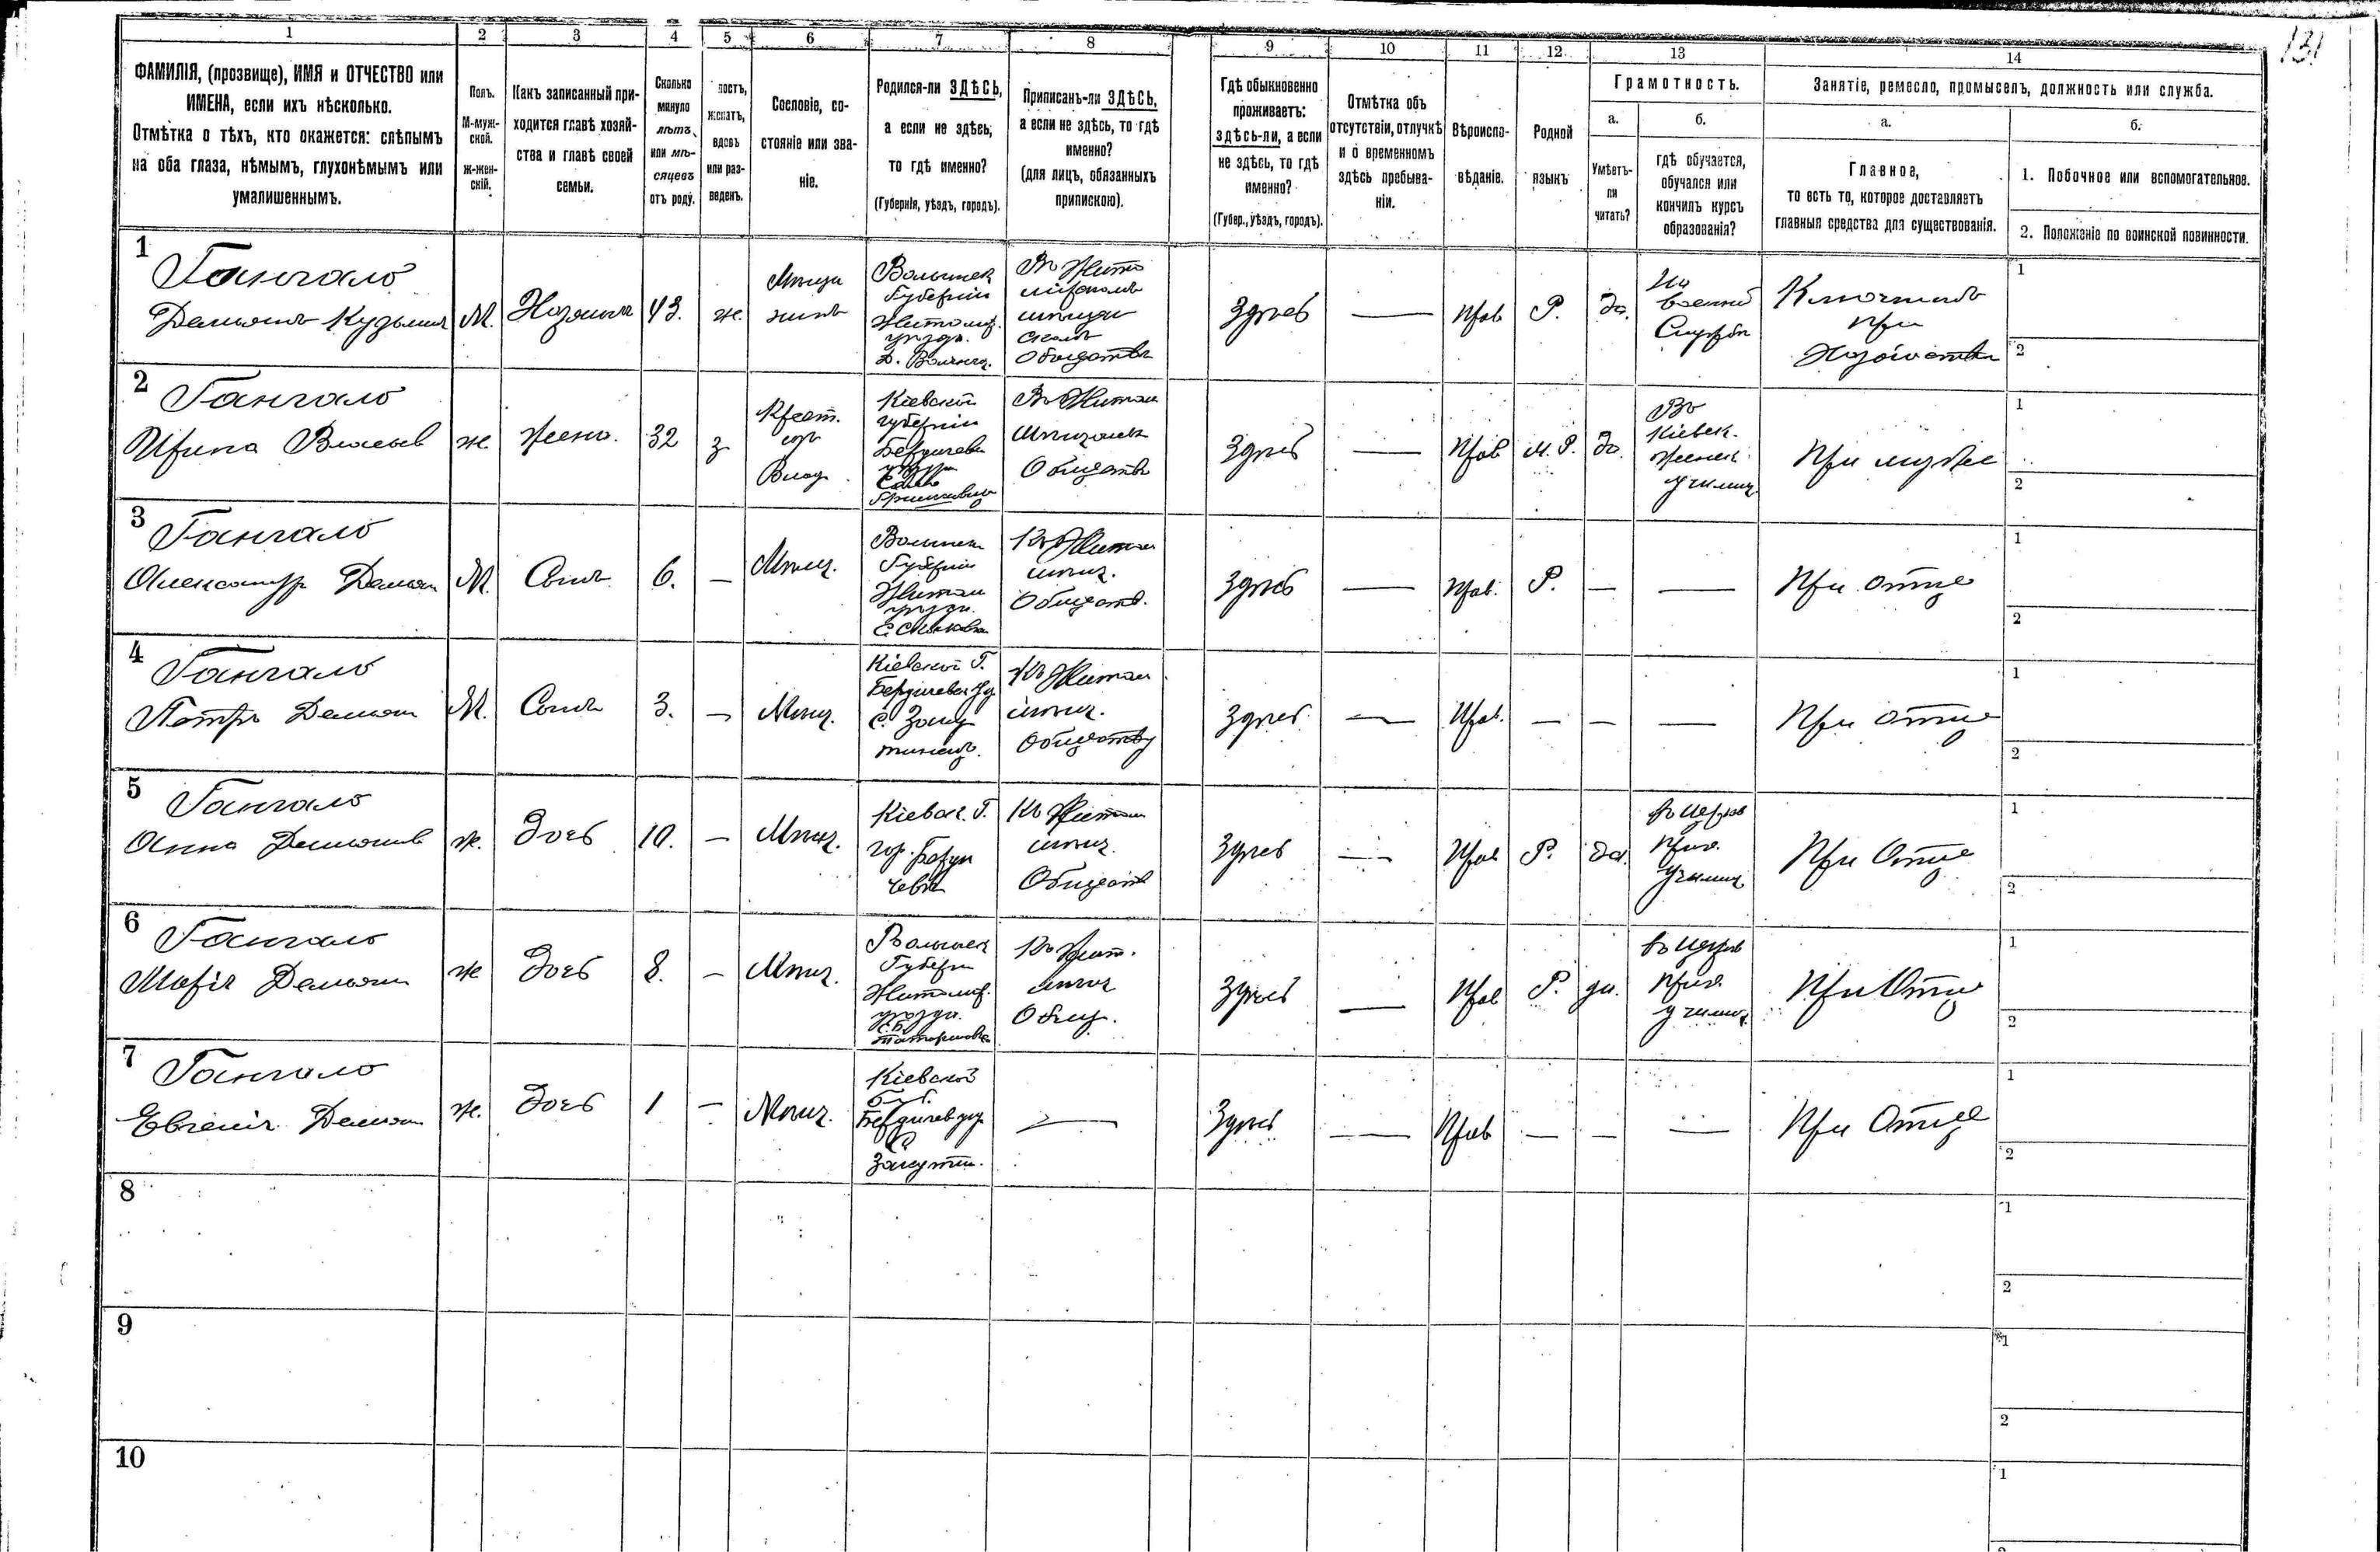 131
1 2 3 4 5 6 7 8 9 10 11 12 13 14
ФАМИЛІЯ, (прозвище), ИМЯ и ОТЧЕСТВО или
ИМЕНА, если ихъ нѣсколько.
Отмѣтка о тѣхъ, кто окажется: слѣпымъ
на оба глаза, нѣмымъ, глухонѣмымъ или
умалишеннымъ.
Полъ.
М-муж-
ской.
Ж-жен-
скій.
Какъ записанный при-
ходится главѣ хозяй-
ства и главѣ своей
семьи.
Сколько
минуло
лѣтъ,
или мѣ-
сяцевъ
отъ роду.
лостъ,
женатъ,
вдовъ
или раз-
веденъ.
Сословіе, со-
стояніе или зва-
ніе.
Родился-ли ЗДѢСЬ,
а если не здѣсь,
то гдѣ именно?
(Губернія, уѣздъ, городъ).
Приписанъ-ли ЗДѢСЬ,
а если не здѣсь, то гдѣ
именно?
(для лицъ, обязанныхъ
припискою).
Гдѣ обыкновенно
проживаетъ:
здѣсь-ли, а если
не здѣсь, то гдѣ
именно?
(Губер., уѣздъ, городъ).
Отмѣтка объ
отсутствіи, отлучкѣ
и о временномъ
здѣсь пребыва-
ніи.
Вѣроиспо-
вѣданіе.
Родной
языкъ
Грамотность.
а.
Умѣетъ-
ли
читать?
б.
гдѣ обучается,
обучался или
кончилъ курсъ
образованія?
Занятіе, ремесло, промыселъ, должность или служба.
а.
Главное,
то есть то, которое доставляетъ
главныя средства для существованія.
б.
1. Побочное или вспомогательное.
2. Положеніе по воинской повинности.
1
Гангало
Демьянъ Кузьмич
М.
Хозяинъ
43.
ж.
Мѣща
нинъ
Волынск
Губерніи
Житомир.
уѣзда.
Въ Жито
мірскомъ
мѣщан
скомъ
Обществѣ
Здѣсь
—
Прав
Р.
да.
На
военной
Службѣ
Ключникъ
при
Хозяйствѣ
1
2
2
Гангало
Ирина Власьев
ж
жена.
32
з
Крест.
Кіевской
губерніи
Бердичевск
уѣзда
Село
Въ Житом
Мѣщанск
Обществѣ
Здѣсь
—
Прав
м. Р.
да.
Въ
Кіевск.
женск.
училищ.
При мужѣ
1
2
3
Гангало
Александръ Демьян
М.
Сынъ
6.
—
Мѣщ.
Волынск
Губерніи
Житом
уѣзда.
Житом
мѣщ.
Обществ.
Здѣсь
—
Прав.
Р.
—
—
При отцѣ
1
2
4
Гангало
Петръ Демьян
М.
Сынъ
3.
—
Мѣщ.
Кіевской Г.
Бердичевск. У.
Житом
мѣщ.
Обществу
Здѣсь.
—
Прав.
—
—
—
При отцѣ
1
2
5
Гангало
Анна Демьянов
ж.
Дочь
10.
—
Мѣщ.
Кіевск. Г.
гор. Берди
чевѣ
Житом
мѣщ.
Обществ
Здѣсь
—
Прав
Р.
да.
въ церков
прих.
училищ.
При Отцѣ
1
2
6
Гангало
Марія Демьян
ж
Дочь
8.
—
Мѣщ.
Волынск
Губерн
Житомир.
уѣзда.
Жит.
мѣщ
Общ.
Здѣсь
—
Прав
Р.
да.
въ церков
прих.
училищ.
При Отцѣ
1
2
7
Гангало
Евгенія Демьян
ж.
Дочь
1
—
Мѣщ.
Кіевской
Губ.
Бердичев уѣз
—
Здѣсь
—
Прав
—
—
—
При Отцѣ
1
2
8
1
2
9
1
2
10
1